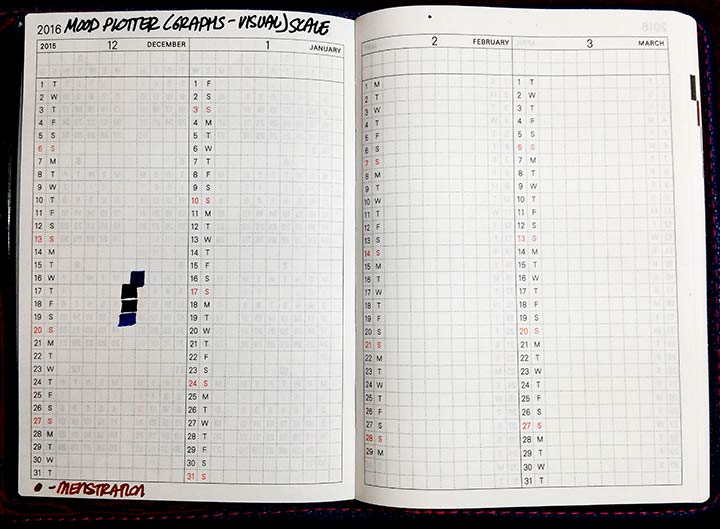 2016 MOOD PLOTTER (GRAPHS - VISUAL) SCALE
2015 12 DECEMBER 1 JANUARY
1 T 1 F
2 W 2 S
3 T 3 S
4 F 4 M
5 S 5 T
6 S 6 W
7 M 7 T
8 T 8 F
9 W 9 S
10 T 10 S
11 F 11 M
12 S 12 T
13 S 13 W
14 M 14 T
15 T 15 F
16 W 16 S
17 T 17 S
18 F 18 M
19 S 19 T
20 S 20 W
21 M 21 T
22 T 22 F
23 W 23 S
24 T 24 S
25 F 25 M
26 S 26 T
27 S 27 W
28 M 28 T
29 T 29 F
30 W 30 S
31 T 31 S
- MENSTRATION
2 FEBRUARY 3 MARCH
1 M 1 T
2 T 2 W
3 W 3 T
4 T 4 F
5 F 5 S
6 S 6 S
7 S 7 M
8 M 8 T
9 T 9 W
10 W 10 T
11 T 11 F
12 F 12 S
13 S 13 S
14 S 14 M
15 M 15 T
16 T 16 W
17 W 17 T
18 T 18 F
19 F 19 S
20 S 20 S
21 S 21 M
22 M 22 T
23 T 23 W
24 W 24 T
25 T 25 F
26 F 26 S
27 S 27 S
28 S 28 M
29 M 29 T
30 W
31 T